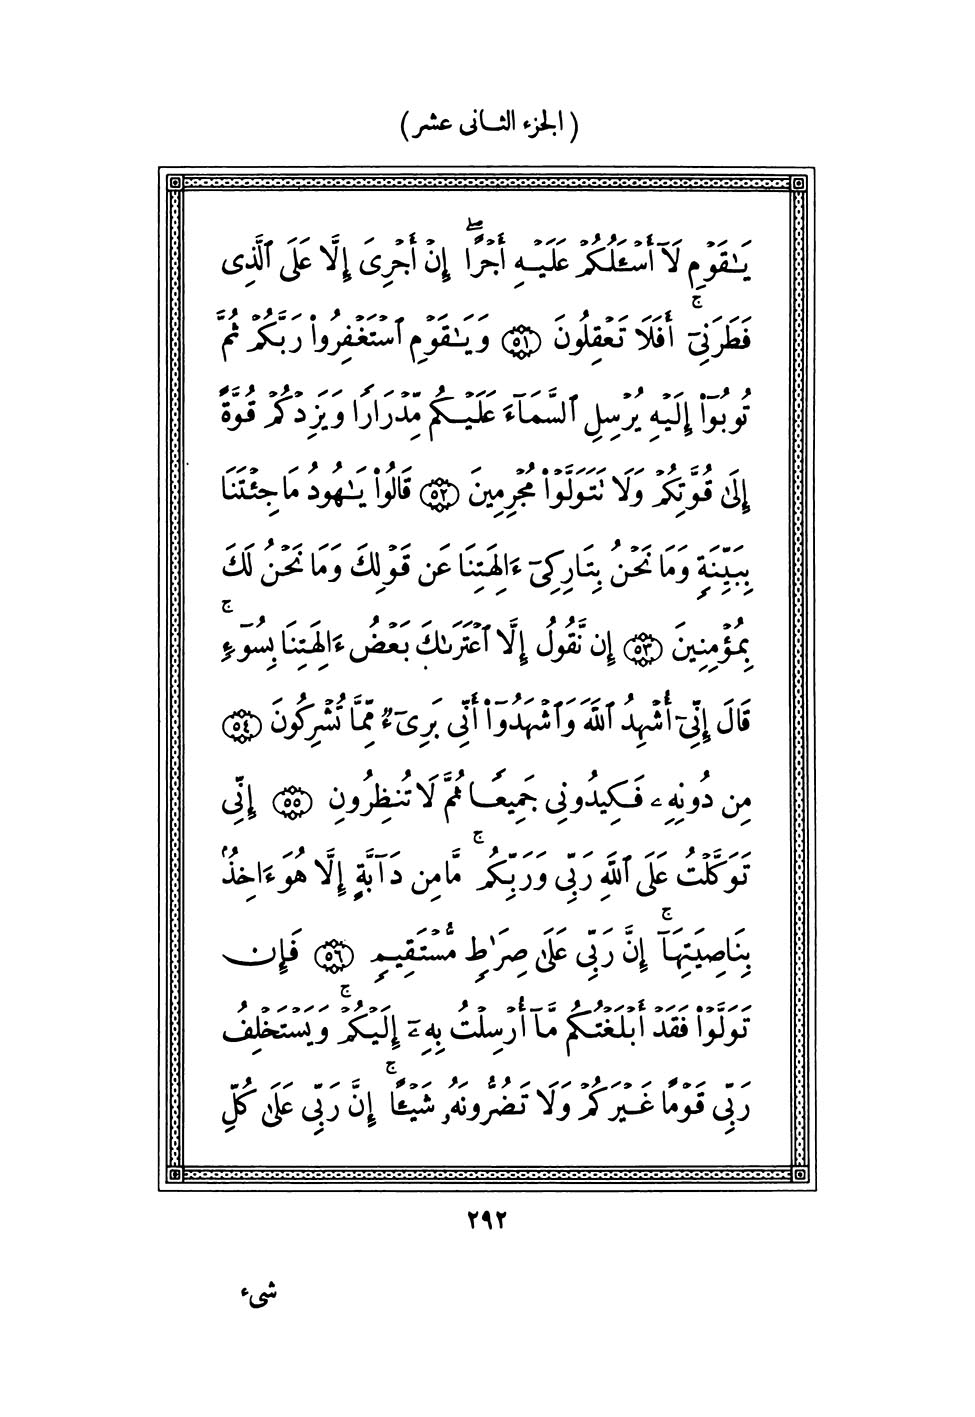 ( الجزء الثانى عشر )
يَـٰقَوْمِ لَآ أَسْـَٔلُكُمْ عَلَيْهِ أَجْرًا ۖ إِنْ أَجْرِىَ إِلَّا عَلَى ٱلَّذِى
فَطَرَنِىٓ ۚ أَفَلَا تَعْقِلُونَ ﴿٥١﴾ وَيَـٰقَوْمِ ٱسْتَغْفِرُوا۟ رَبَّكُمْ ثُمَّ
تُوبُوٓا۟ إِلَيْهِ يُرْسِلِ ٱلسَّمَآءَ عَلَيْكُم مِّدْرَارًا وَيَزِدْكُمْ قُوَّةً
إِلَىٰ قُوَّتِكُمْ وَلَا تَتَوَلَّوْا۟ مُجْرِمِينَ ﴿٥٢﴾ قَالُوا۟ يَـٰهُودُ مَا جِئْتَنَا
بِبَيِّنَةٍ وَمَا نَحْنُ بِتَارِكِىٓ ءَالِهَتِنَا عَن قَوْلِكَ وَمَا نَحْنُ لَكَ
بِمُؤْمِنِينَ ﴿٥٣﴾ إِن نَّقُولُ إِلَّا ٱعْتَرَىٰكَ بَعْضُ ءَالِهَتِنَا بِسُوٓءٍ ۚ
قَالَ إِنِّىٓ أُشْهِدُ ٱللَّهَ وَٱشْهَدُوٓا۟ أَنِّى بَرِىٓءٌ مِّمَّا تُشْرِكُونَ ﴿٥٤﴾
مِن دُونِهِۦ فَكِيدُونِى جَمِيعًا ثُمَّ لَا تُنظِرُونِ ﴿٥٥﴾ إِنِّى
تَوَكَّلْتُ عَلَى ٱللَّهِ رَبِّى وَرَبِّكُم ۚ مَّا مِن دَآبَّةٍ إِلَّا هُوَ ءَاخِذٌۢ
بِنَاصِيَتِهَآ ۚ إِنَّ رَبِّى عَلَىٰ صِرَٰطٍ مُّسْتَقِيمٍ ﴿٥٦﴾ فَإِن
تَوَلَّوْا۟ فَقَدْ أَبْلَغْتُكُم مَّآ أُرْسِلْتُ بِهِۦٓ إِلَيْكُمْ ۚ وَيَسْتَخْلِفُ
رَبِّى قَوْمًا غَيْرَكُمْ وَلَا تَضُرُّونَهُۥ شَيْـًٔا ۚ إِنَّ رَبِّى عَلَىٰ كُلِّ
٢٩٢
شىء